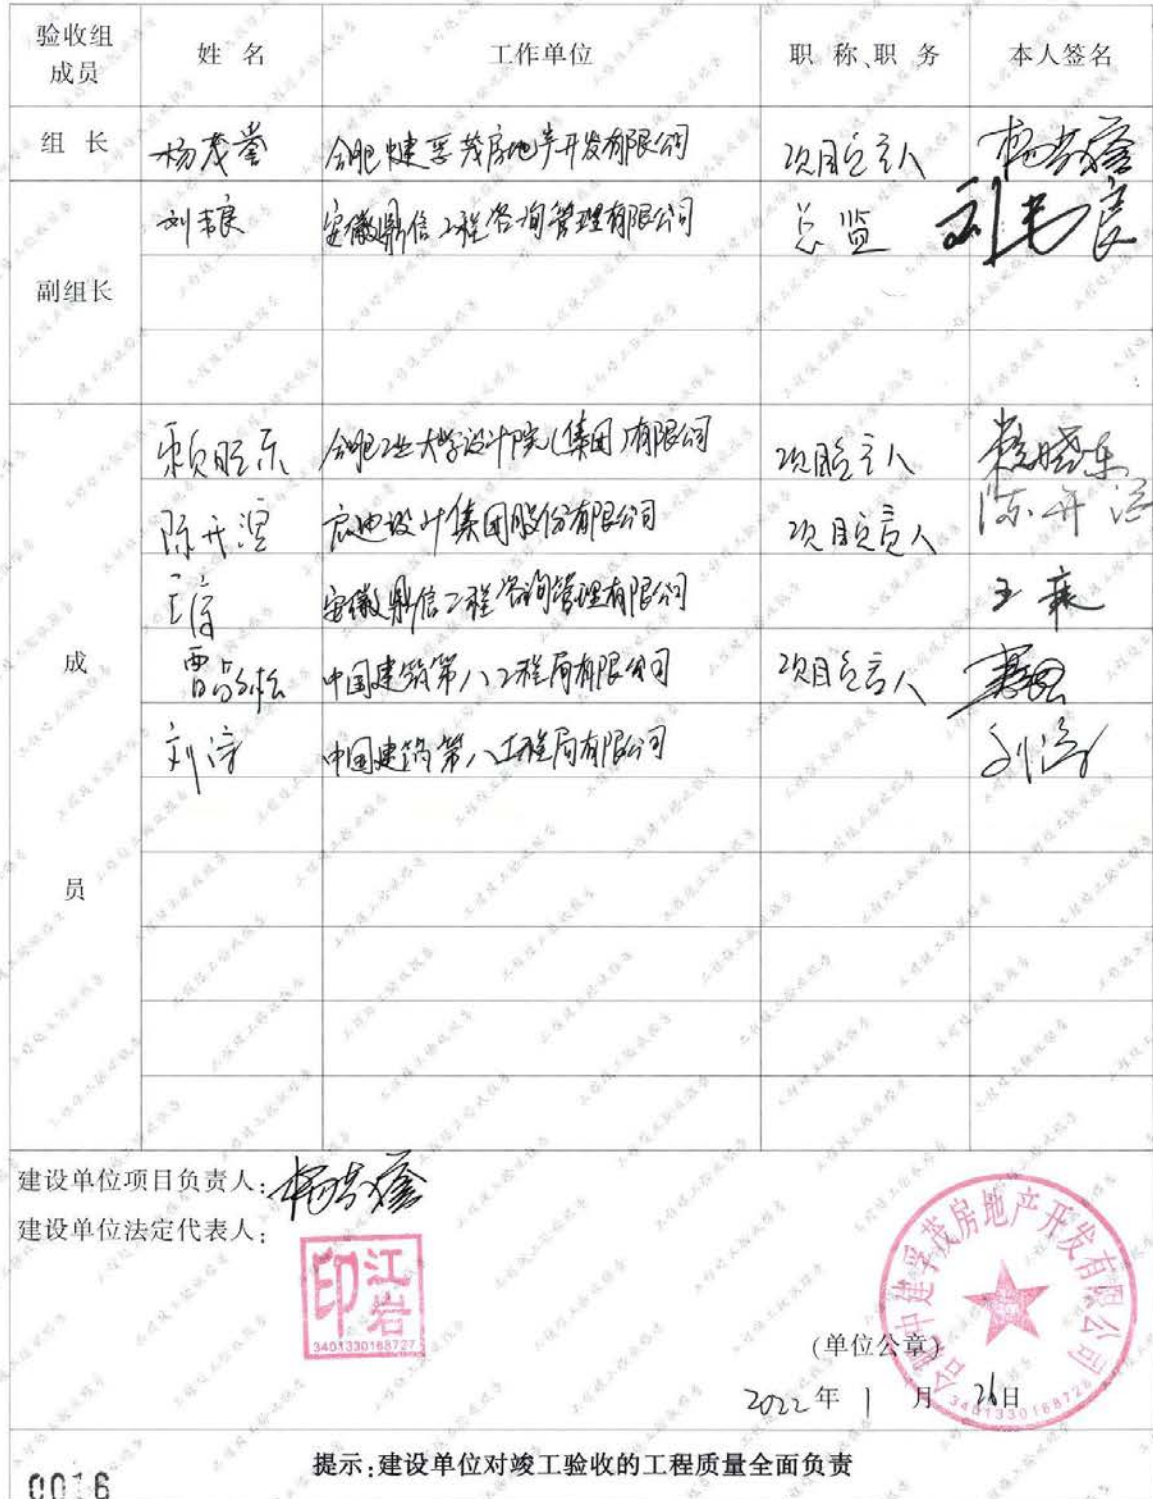 验收组成员 姓名 工作单位 职称、职务 本人签名
组长 杨茂 合肥中建孚茂房地产开发有限公司 项目负责人
刘 良 安徽鼎信工程咨询管理有限公司 总监
副组长
赖晓东 合肥工业大学设计院(集团)有限公司 项目负责人 赖晓东
陈开 启迪设计集团股份有限公司 项目负责人 陈开
王 安徽鼎信工程咨询管理有限公司 王
曹 松 中国建筑第八工程局有限公司 项目负责人
刘涛 中国建筑第八工程局有限公司 刘涛
成员
建设单位项目负责人:
建设单位法定代表人:
江岩印
3401330168727
合肥中建孚茂房地产开发有限公司
(单位公章)
2022年1月26日
提示:建设单位对竣工验收的工程质量全面负责
0016